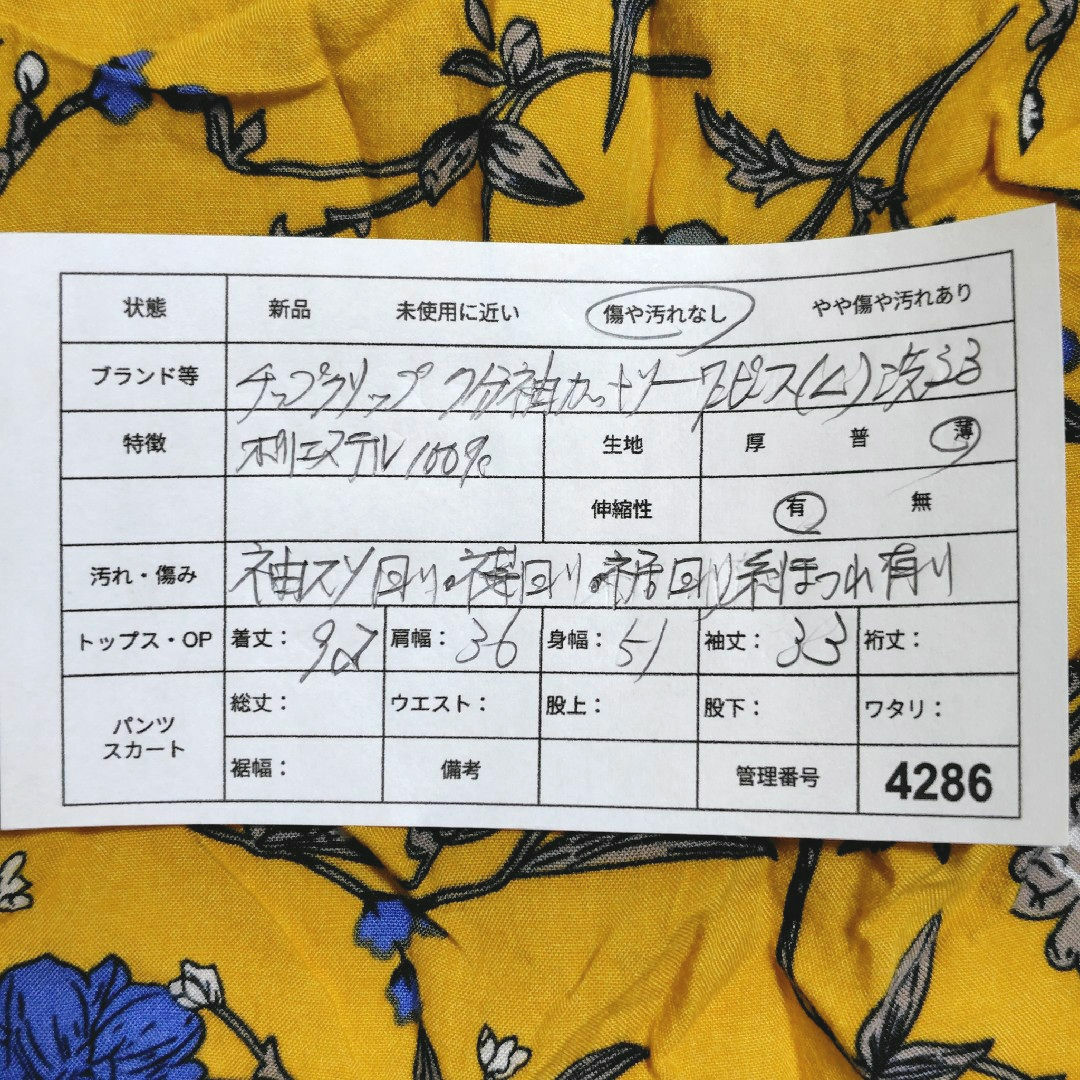 状態 新品 未使用に近い 傷や汚れなし やや傷や汚れあり
ブランド等 チップクリップ 7分袖カットソーワンピス(L)
特徴 ポリエステル100% 生地 厚 普 薄
伸縮性 有 無
汚れ・傷み 袖スソ回り 裾回り糸ほつれ有り
トップス・OP 着丈: 92 肩幅: 36 身幅: 51 袖丈: 33 裄丈:
パンツ スカート 総丈: ウエスト: 股上: 股下: ワタリ:
裾幅: 備考 管理番号 4286